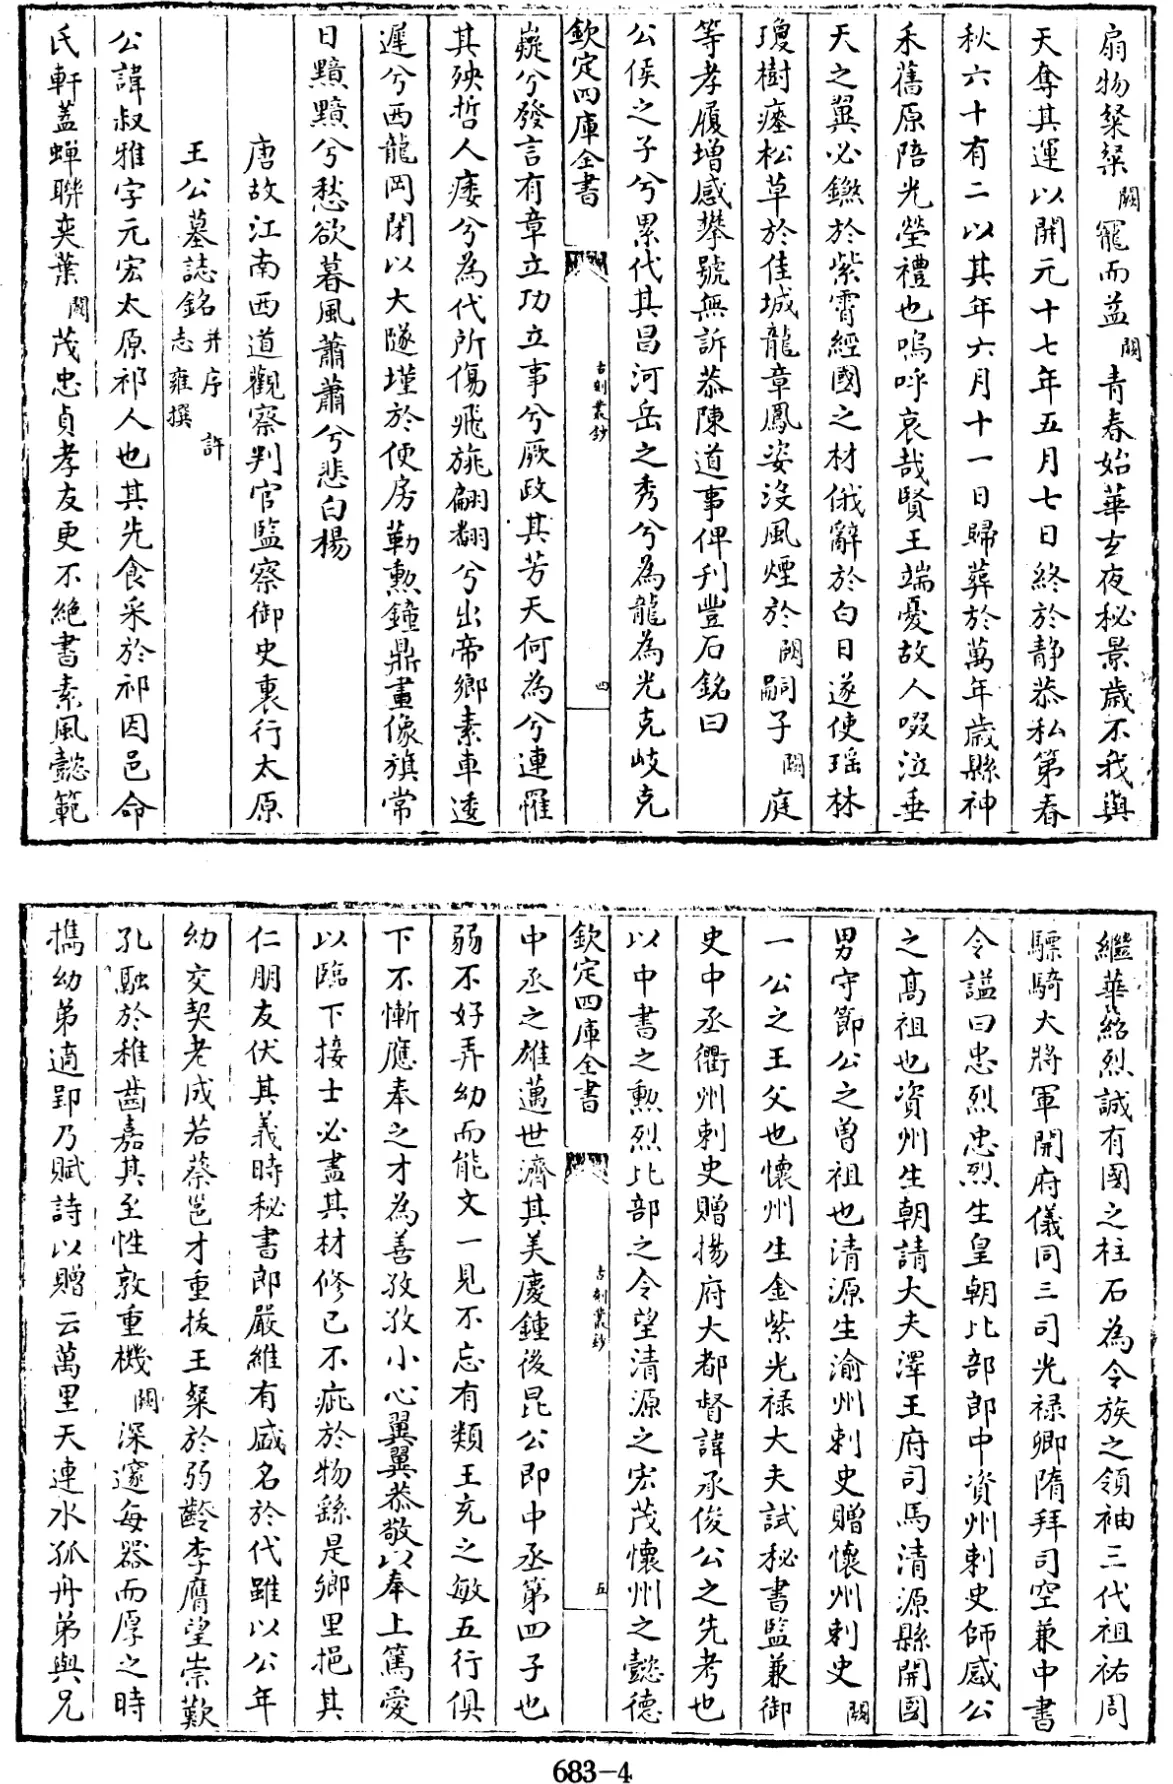 扇物粲粲闕寵而益闕青春始華玄夜秘景歳不我與
天奪其運以開元十七年五月七日終於靜恭私第春
秋六十有二以其年六月十一日歸葬於萬年歳縣神
禾舊原陪光塋禮也嗚呼哀哉賢王端憂故人啜泣垂
天之翼必鎩於紫霄經國之材俄辭於白日遂使瑶林
瓊樹瘞松草於佳城龍章鳳姿沒風煙於闕嗣子闕庭
等孝履增感攀號無訴恭陳道事俾刋豐石銘曰
公侯之子兮累代其昌河岳之秀兮為龍為光克岐克
欽定四庫全書
古刻叢鈔
四
嶷兮發言有章立功立事兮厥政其芳天何為兮連罹
其殃哲人痿兮為代所傷飛旐翩翻兮出帝鄉素車逶
遲兮西龍岡閉以大隧墐於便房勒勲鐘鼎畫像旗常
日黯黯兮愁欲暮風蕭蕭兮悲白楊
唐故江南西道觀察判官監察御史裏行太原
王公墓誌銘并序許志雍撰
公諱叔雅字元宏太原祁人也其先食采於祁因邑命
氏軒蓋蟬聯奕葉闕茂忠貞孝友更不絶書素風懿範
繼華紹烈誠有國之柱石為令族之領袖三代祖祐周
驃騎大將軍開府儀同三司光禄卿隋拜司空兼中書
令謚曰忠烈忠烈生皇朝比部郎中資州刺史師感公
之髙祖也資州生朝請大夫澤王府司馬清源縣開國
男守節公之曽祖也清源生渝州刺史贈懷州刺史闕
一公之王父也懷州生金紫光禄大夫試秘書監兼御
史中丞衢州刺史贈揚府大都督諱承俊公之先考也
以中書之勲烈比部之令望清源之宏茂懷州之懿德
欽定四庫全書
古刻叢鈔
五
中丞之雄邁世濟其美慶鍾後昆公即中丞第四子也
弱不好弄幼而能文一見不忘有類王充之敏五行俱
下不慚應奉之才為善孜孜小心翼翼恭敬以奉上篤愛
以臨下接士必盡其材修己不疵於物繇是鄉里挹其
仁朋友伏其義時秘書郎嚴維有盛名於代雖以公年
幼交契老成若蔡邕才重拔王粲於弱齡李膺望崇歎
孔融於稚齒嘉其至性敦重機闕深邃每器而厚之時
攜幼弟適郢乃賦詩以贈云萬里天連水孤舟弟與兄
683-4